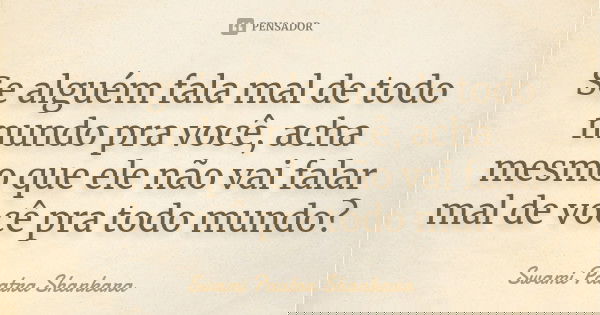 PENSADOR
Se alguém fala mal de todo
mundo pra você, acha
mesmo que ele não vai falar
mal de você pra todo mundo?
Swami Paatra Shankara